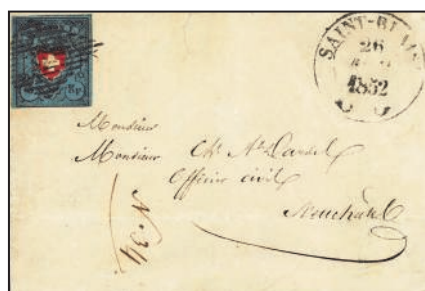 Rp.
SAINT-BLAISE
26
1852
Monsieur
Monsieur Ch.
Officier civil
Neuchâtel
N. 34